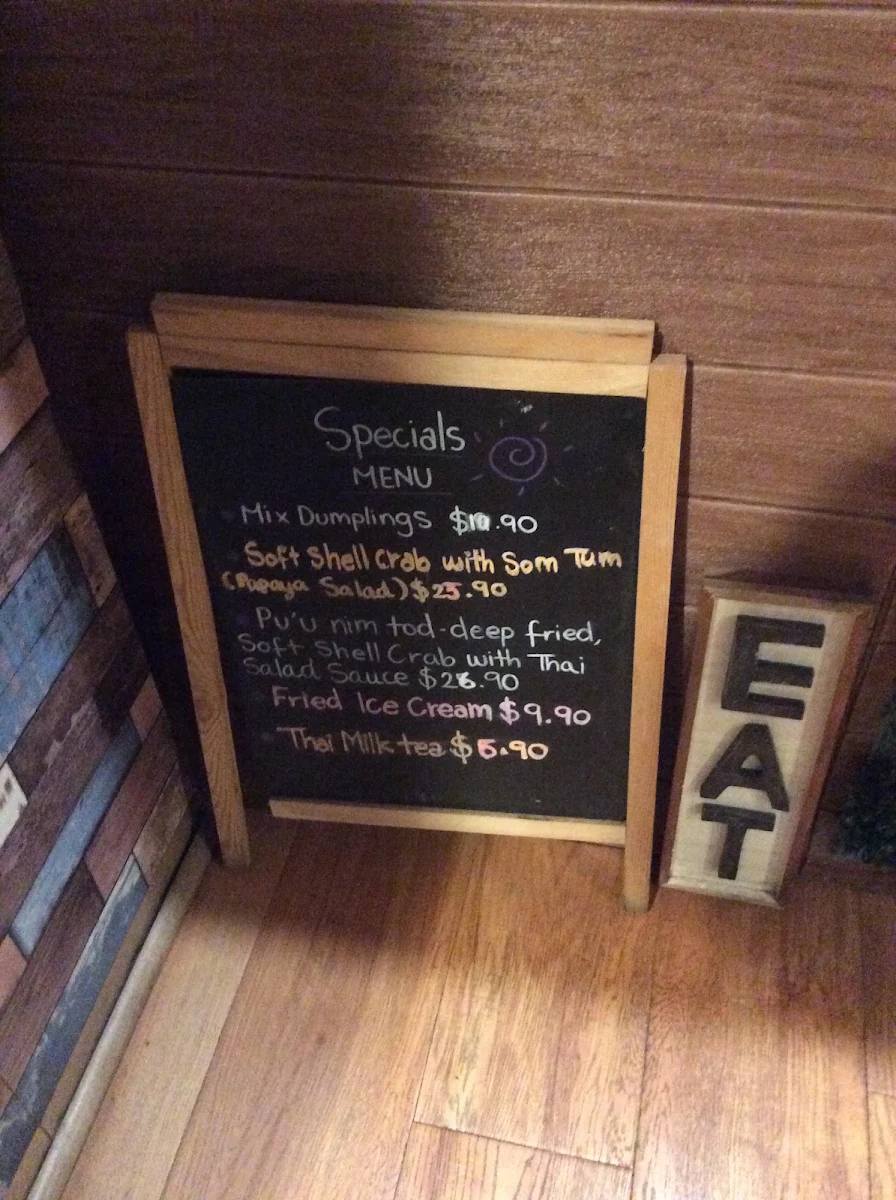 Specials
MENU
Mix Dumplings $10.90
Soft Shell Crab with Som Tum
(Papaya Salad) $25.90
Pu'u nim tod-deep fried,
Soft Shell Crab with Thai
Salad Sauce $26.90
Fried Ice Cream $9.90
Thai Milk tea $5.90
EAT